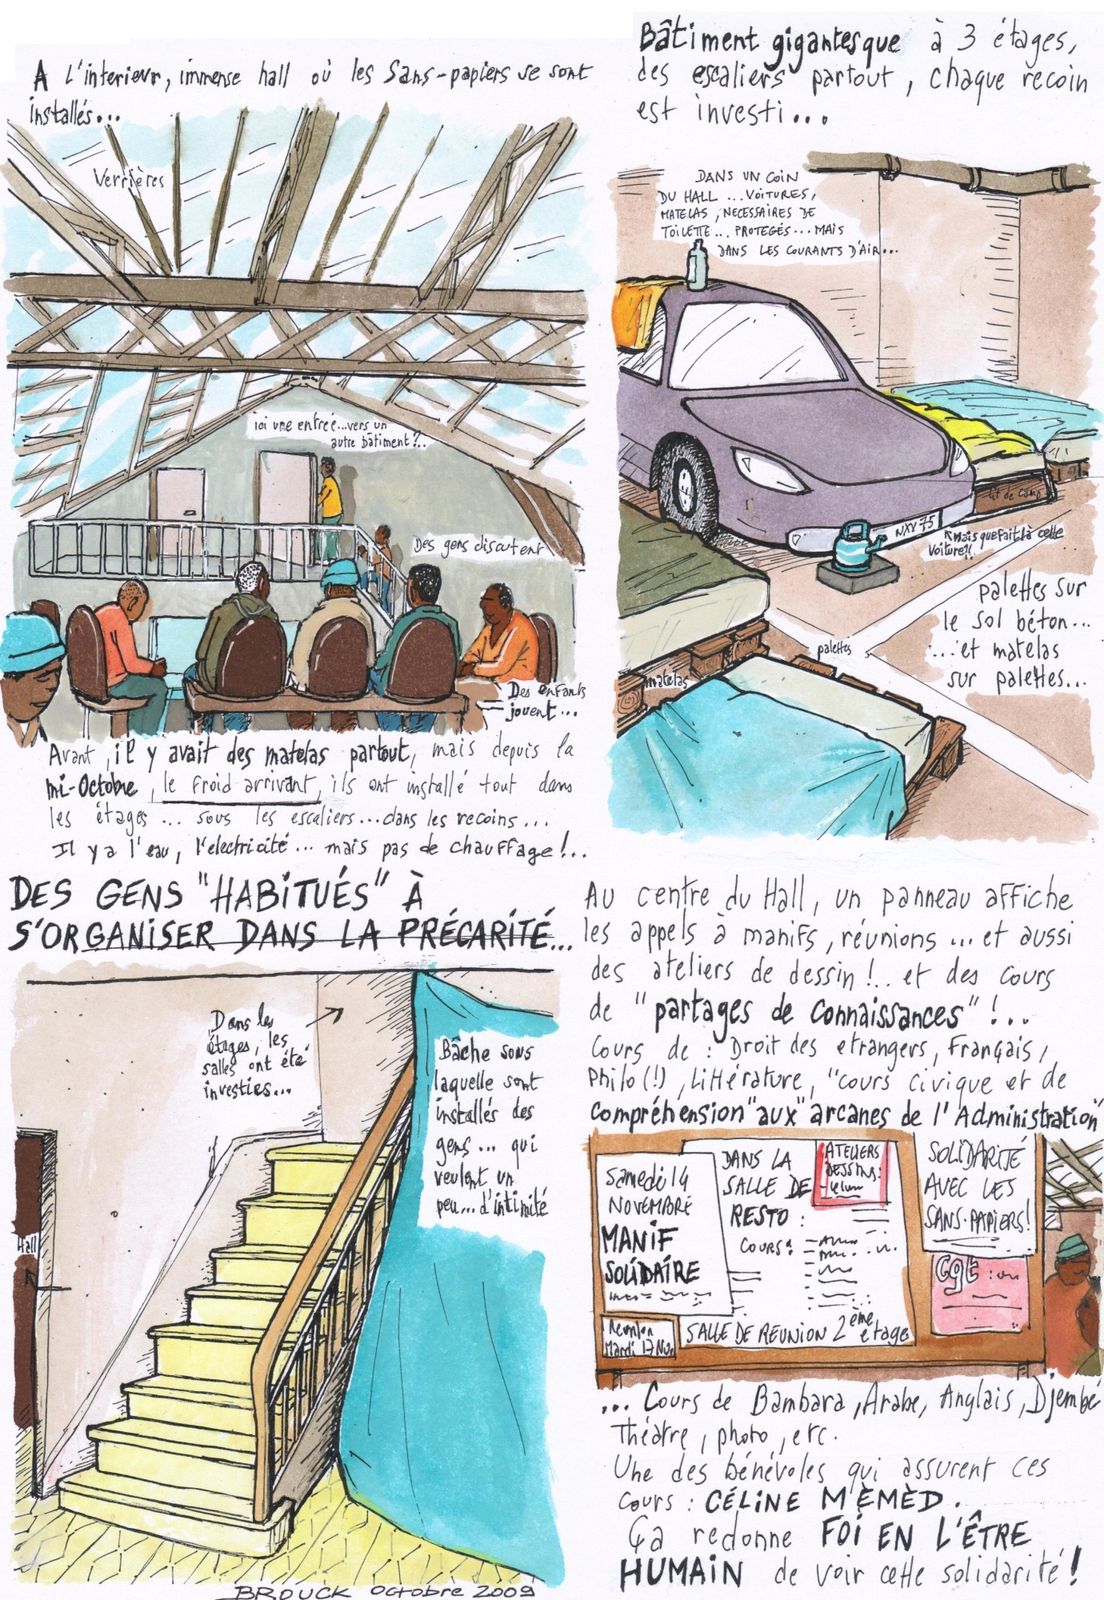 A L'intérieur, immense hall où les Sans-papiers se sont
installés...
Verrières
ici une entrée...vers un
autre bâtiment?..
Des gens discutent
Des enfants
jouent...
Avant, il y avait des matelas partout, mais depuis la
mi-Octobre, le froid arrivant, ils ont installé tout dans
les étages... sous les escaliers...dans les recoins...
Il y a l'eau, l'electricité... mais pas de chauffage!..
Bâtiment gigantesque à 3 étages,
des escaliers partout, chaque recoin
est investi...
DANS UN COIN
DU HALL ... VOITURES,
MATELAS, NECESSAIRES DE
TOILETTE... PROTEGÉS... MAIS
DANS LES COURANTS D'AIR...
lit de camp
NXY 75
mais que fait là cette
voiture?!
palettes sur
le sol béton...
...et matelas
sur palettes...
palettes
matelas
DES GENS "HABITUÉS" À
S'ORGANISER DANS LA PRÉCARITÉ...
Dans les
étages, les
salles ont été
investies...
Bâche sous
laquelle sont
installés des
gens... qui
veulent un
peu... d'intimité
Hall
BROUCK octobre 2009
Au centre du Hall, un panneau affiche
les appels à manifs, réunions ... et aussi
des ateliers de dessin!.. et des cours
de "partages de connaissances"!...
Cours de : Droit des etrangers, Français,
Philo(!), Littérature, "cours civique et de
compréhension "aux" arcanes de l'Administration"
Samedi 14
NOVEMBRE
MANIF
SOLIDAIRE
Reunion
Mardi 17 Nov
DANS LA
SALLE DE
RESTO :
COURS:
ATELIERS
DESSINS:
SALLE DE REUNION 2ème etage
SOLIDARITÉ
AVEC LES
SANS-PAPIERS!
Cgt :
... Cours de Bambara, Arabe, Anglais, Djembé
Théâtre, photo, etc.
Une des bénévoles qui assurent ces
cours : CÉLINE MÈMÈD.
Ça redonne FOI EN L'ÊTRE
HUMAIN de voir cette solidarité!